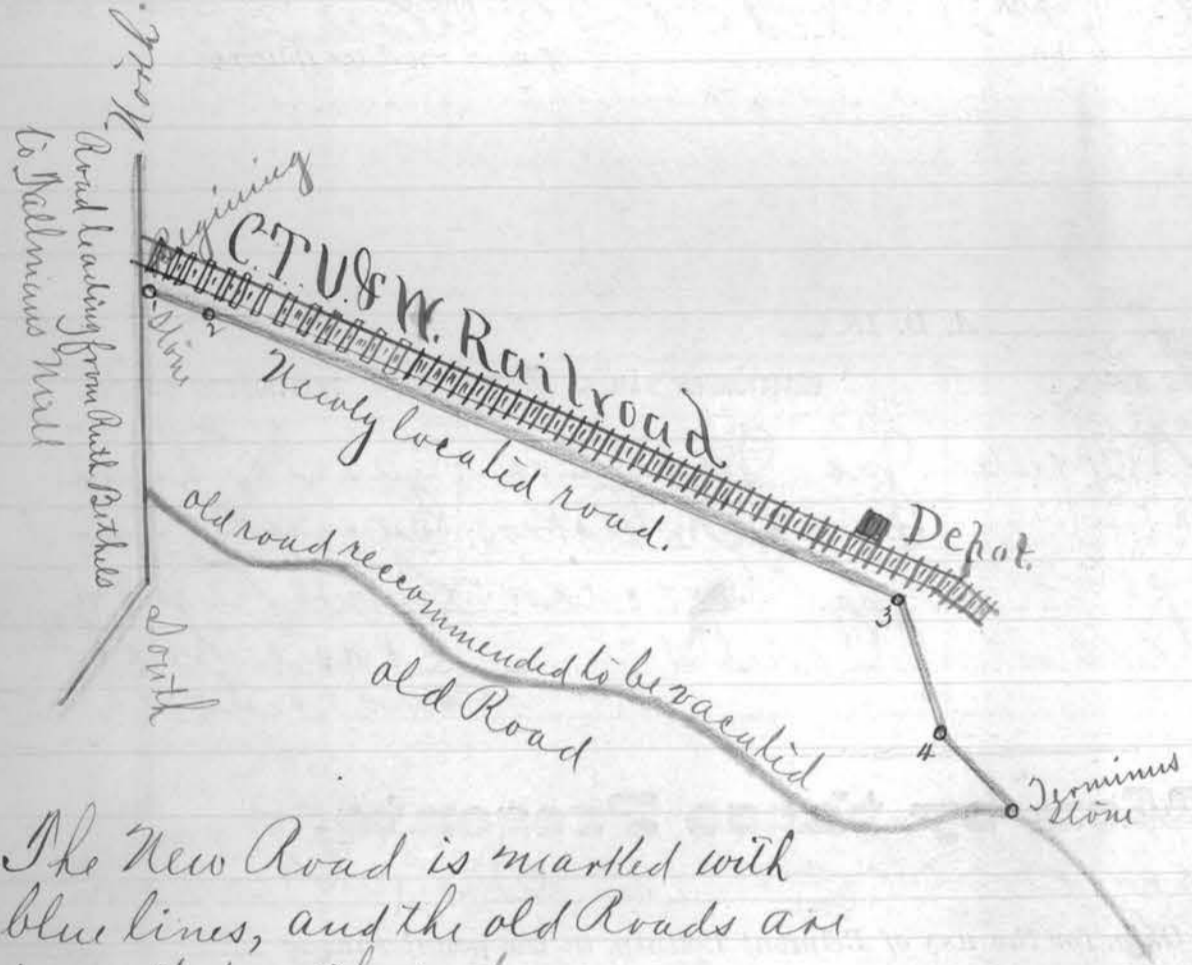 North
Road leading from Ruth Bethels
to Tallmans Mill
South
Begining
Stone
2
C.T.V.& W. Railroad
Newly located road.
Depot.
3
old road reccommended to be vacated
old Road
4
Terminus
Stone
The New Road is marked with
blue lines, and the old Roads are